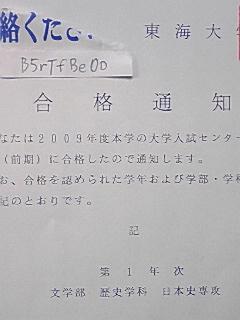 絡くださ
東海大
B5rTfBe0D
合格通知
なたは2009年度本学の大学入試センター
(前期)に合格したので通知します。
お、合格を認められた学年および学部・学科
記のとおりです。
記
第1年次
文学部 歴史学科 日本史専攻